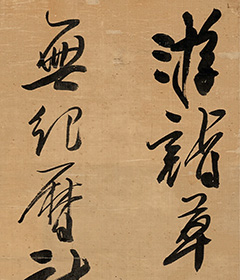 游詣草
無紀曆